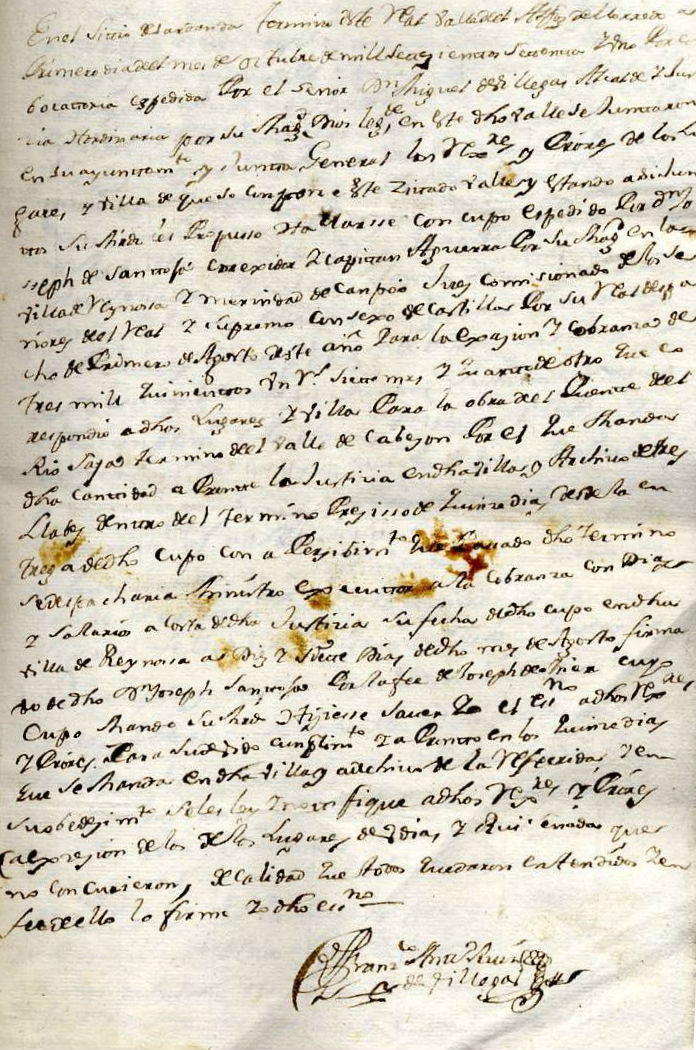 En el Sittio termino deste Rl Valle del
Primero dia del mes de octubre de mill Settezientos Settentta y Uno Por co
bocattoria espedida Por el señor Dn Miguel de Villegas Alcalde y Jus
ticia Hordinaria por su Magd Dios lege en este dho Valle se Junttaron
en su ayunttamto y Juntta General los Rexres y Prores de los Lu
gares y Villa de que se compone este Zittado Valle y estando asi Jun
ttos Su Mrd les Propusso allarsse con cupo espedido Por Dn Jo
seph de Santtossa Correxidor y Cappittan Aguerra Por su Magd en la
Villa de Reynosa y merindad de Campoo Juez Comisionado de los Se
ñores del Rl y Supremo Consexo de Castilla Por su Rl despa
cho de Primero de Agosto deste año Para la exasion y cobranza de
tres mill quinienttos Un Rs Siette mrs y quartto de otro que co
respondio a dhos Lugares y Villa Para la obra del Puente del
Rio Saja termino del Valle de Cabezon Por el que Manda
dha canttidad a Promte la Justicia en dha villa y Archivo de tres
Llabes denttro del termino Presisso de quinze dias desde la en
trega de dho cupo con a Persibimto que Pasado dho termino
se despacharia Ministro executtor a la cobranza con Dias
y Salarios a costa de dha Justicia su fecha de dho cupo en dha
Villa de Reynossa a Diz y Siette Dias de dho mes de Agosto firma
do de dho Dn Joseph Santtossa Por la fee de Joseph de cuyo
Cupo Mando Su Mrd Hiziesse saver Yo el essno a dhos Rexres
y Prores Para su devido cumplimto y a Promto en los quinze dias
que se Manda en dha Villa y archivo de la Referida y en
su obedesimto se les ley y nottifique a dhos Rexres y Prores
a expresion de los de los Lugares de y que
no concurieron, de calidad que todos quedaron enttendidos y en
fee de ello lo firme Yo dho essno
Franco Anttº Ruiz
de Villegas